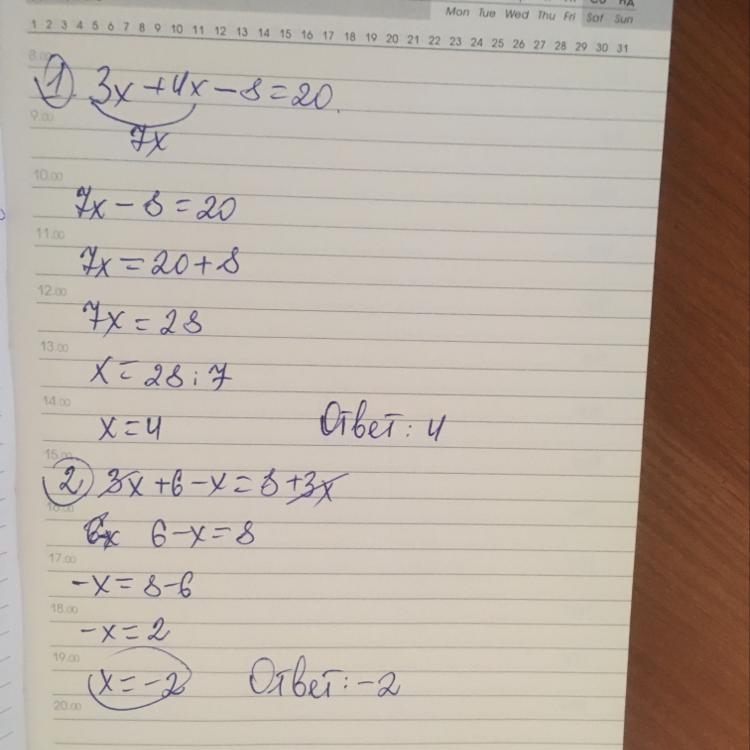 Mon Tue Wed Thu Fri Sat Sun
1 2 3 4 5 6 7 8 9 10 11 12 13 14 15 16 17 18 19 20 21 22 23 24 25 26 27 28 29 30 31
8.00
1) 3x + 4x - 8 = 20.
9.00
7x
10.00
7x - 8 = 20
11.00
7x = 20 + 8
12.00
7x = 28
13.00
x = 28 : 7
14.00
x = 4 Ответ: 4
15.00
2) 3x + 6 - x = 8 + 3x
16.00
6 - x = 8
17.00
-x = 8 - 6
18.00
-x = 2
19.00
x = -2 Ответ: -2
20.00